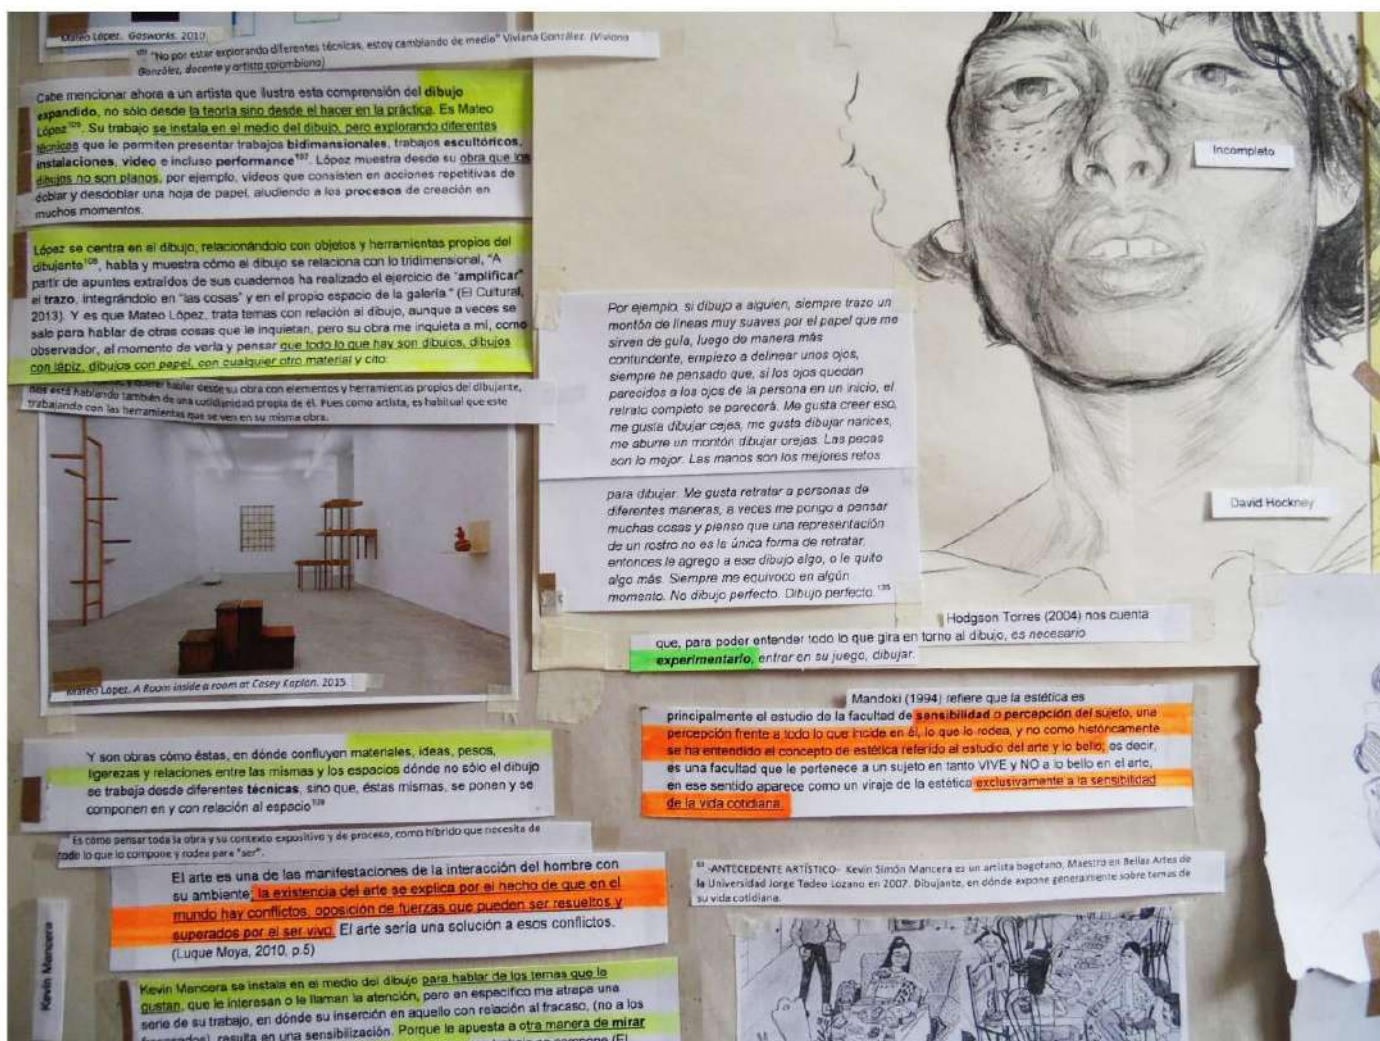 Mateo López. Gasworks. 2010.
"No por estar explorando diferentes técnicas, estoy cambiando de medio" Viviana González. (Viviana
González, docente y artista colombiana)
Cabe mencionar ahora a un artista que ilustra esta comprensión del dibujo
expandido, no sólo desde la teoría sino desde el hacer en la práctica. Es Mateo
López. Su trabajo se instala en el medio del dibujo, pero explorando diferentes
técnicas que le permiten presentar trabajos bidimensionales, trabajos escultóricos,
instalaciones, video e incluso performance¹⁰⁷. López muestra desde su obra que los
dibujos no son planos, por ejemplo, videos que consisten en acciones repetitivas de
doblar y desdoblar una hoja de papel, aludiendo a los procesos de creación en
muchos momentos.
López se centra en el dibujo, relacionándolo con objetos y herramientas propios del
dibujante¹⁰⁸, habla y muestra cómo el dibujo se relaciona con lo tridimensional, "A
partir de apuntes extraídos de sus cuadernos ha realizado el ejercicio de "amplificar"
el trazo, integrándolo en "las cosas" y en el propio espacio de la galería." (El Cultural,
2013). Y es que Mateo López, trata temas con relación al dibujo, aunque a veces se
sale para hablar de otras cosas que le inquietan, pero su obra me inquieta a mí, como
observador, al momento de verla y pensar que todo lo que hay son dibujos, dibujos
con lápiz, dibujos con papel, con cualquier otro material y cito:
y querer hablar desde su obra con elementos y herramientas propios del dibujante,
nos está hablando también de una cotidianidad propia de él. Pues como artista, es habitual que este
trabajando con las herramientas que se ven en su misma obra.
Mateo López. A Room inside a room at Casey Kaplan. 2015
Y son obras cómo éstas, en dónde confluyen materiales, ideas, pesos,
ligerezas y relaciones entre las mismas y los espacios dónde no sólo el dibujo
se trabaja desde diferentes técnicas, sino que, éstas mismas, se ponen y se
componen en y con relación al espacio¹⁰⁹
Es cómo pensar toda la obra y su contexto expositivo y de proceso, como híbrido que necesita de
todo lo que lo compone y rodea para "ser".
El arte es una de las manifestaciones de la interacción del hombre con
su ambiente; la existencia del arte se explica por el hecho de que en el
mundo hay conflictos, oposición de fuerzas que pueden ser resueltos y
superados por el ser vivo. El arte sería una solución a esos conflictos.
(Luque Moya, 2010, p.5)
Kevin Mancera
Kevin Mancera se instala en el medio del dibujo para hablar de los temas que le
gustan, que le interesan o le llaman la atención, pero en específico me atrapa una
serie de su trabajo, en dónde su inserción en aquello con relación al fracaso, (no a los
fracasados), resulta en una sensibilización. Porque le apuesta a otra manera de mirar
Incompleto
Por ejemplo, si dibujo a alguien, siempre trazo un
montón de líneas muy suaves por el papel que me
sirven de guía, luego de manera más
contundente, empiezo a delinear unos ojos,
siempre he pensado que, si los ojos quedan
parecidos a los ojos de la persona en un inicio, el
retrato completo se parecerá. Me gusta creer eso,
me gusta dibujar cejas, me gusta dibujar narices,
me aburre un montón dibujar orejas. Las pecas
son lo mejor. Las manos son los mejores retos
para dibujar. Me gusta retratar a personas de
diferentes maneras, a veces me pongo a pensar
muchas cosas y pienso que una representación
de un rostro no es la única forma de retratar,
entonces le agrego a ese dibujo algo, o le quito
algo más. Siempre me equivoco en algún
momento. No dibujo perfecto. Dibujo perfecto.¹³⁵
David Hockney
Hodgson Torres (2004) nos cuenta
que, para poder entender todo lo que gira en torno al dibujo, es necesario
experimentarlo, entrar en su juego, dibujar.
Mandoki (1994) refiere que la estética es
principalmente el estudio de la facultad de sensibilidad o percepción del sujeto, una
percepción frente a todo lo que incide en él, lo que lo rodea, y no como históricamente
se ha entendido el concepto de estética referido al estudio del arte y lo bello; es decir,
es una facultad que le pertenece a un sujeto en tanto VIVE y NO a lo bello en el arte,
en ese sentido aparece como un viraje de la estética exclusivamente a la sensibilidad
de la vida cotidiana.
-ANTECEDENTE ARTÍSTICO- Kevin Simón Mancera es un artista bogotano, Maestro en Bellas Artes de
la Universidad Jorge Tadeo Lozano en 2007. Dibujante, en dónde expone generalmente sobre temas de
su vida cotidiana.